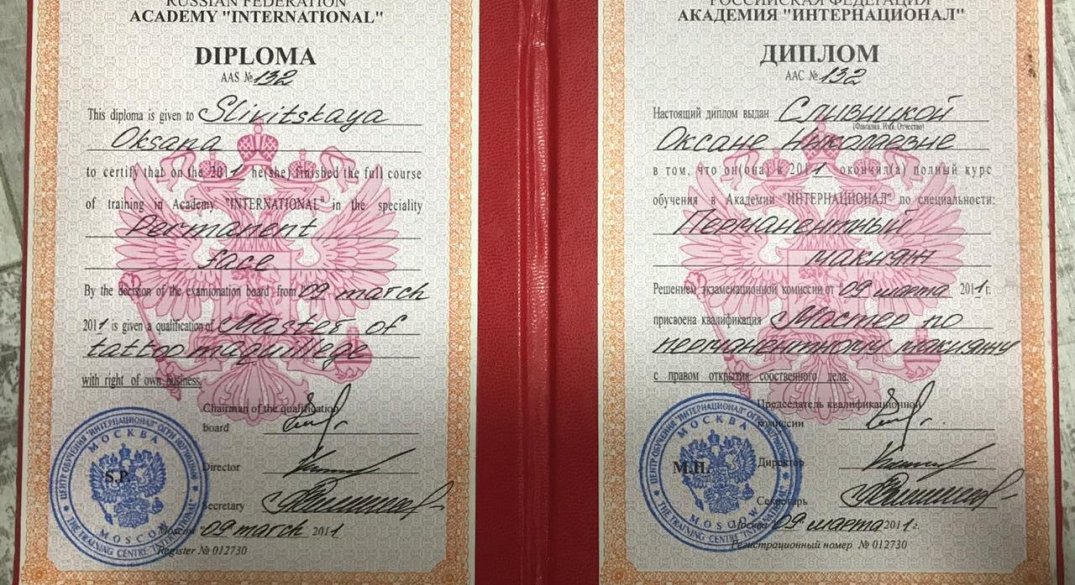 RUSSIAN FEDERATION
ACADEMY "INTERNATIONAL"
DIPLOMA
AAS № 132
This diploma is given to Slivitskaya
Oksana
to certify that on the 2011 he(she) finished the full course
of training in Academy "INTERNATIONAL" in the speciality
Permanent
face
By the decision of the examionation board from 09 march
2011 is given a qualification of Master of
tattoo maquillege
with right of own business.
Chairman of the qualification
board
S.P.
Director
Secretary
Moscow 09 march 2011
Register № 012730
ЦЕНТР ОБУЧЕНИЯ "ИНТЕРНАЦИОНАЛ"
МОСКВА
MOSCOW
THE TRAINING CENTRE "INTERNATIONAL"
РОССИЙСКАЯ ФЕДЕРАЦИЯ
АКАДЕМИЯ "ИНТЕРНАЦИОНАЛ"
ДИПЛОМ
ААС № 132
Настоящий диплом выдан Сливицкой
(Фамилия, Имя, Отчество)
Оксане Николаевне
в том, что он(она) в 2011 окончил(а) полный курс
обучения в Академии "ИНТЕРНАЦИОНАЛ" по специальности:
Перманентный
макияж
Решением экзаменационной комиссии от 09 марта 2011г.
присвоена квалификация Мастер по
перманентному макияжу
с правом открытия собственного дела.
Председатель квалификационной
комиссии
М.П.
Директор
Секретарь
Москва 09 марта 2011г.
Регистрационный номер № 012730
ЦЕНТР ОБУЧЕНИЯ "ИНТЕРНАЦИОНАЛ"
МОСКВА
MOSCOW
THE TRAINING CENTRE